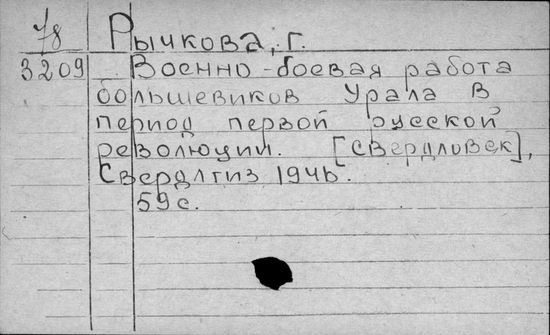 78 Рычкова, Г.
3209 Военно-боевая работа
большевиков Урала в
период первой русской
революции. [Свердловск],
Свердлгиз, 1946.
59 с.